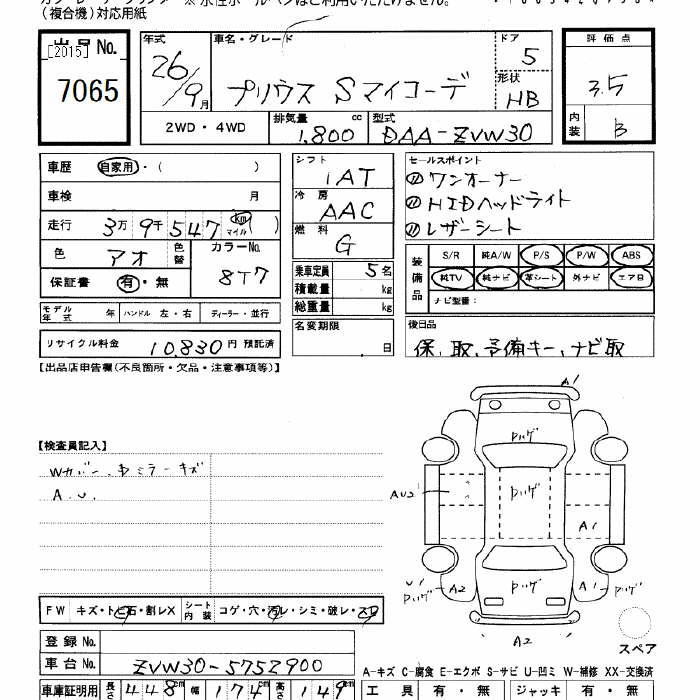 (複合機)対応用紙
出品No.
[2015]
7065
年式
26/9月
車名・グレード
プリウス Sマイコーデ
ドア
5
形状
HB
評価点
3.5
内装
B
2WD・4WD
排気量 cc
1,800
型式
DAA-ZVW30
車歴 自家用・( )
車検 月
走行 3万9千547 km マイル ( )
色 アオ 色替
カラーNo.
8T7
保証書 有・無
モデル年式 年 ハンドル 左・右 ディーラー・並行
リサイクル料金 10,830円 預託済
シフト
IAT
冷房
AAC
燃料
G
乗車定員 5名
積載量 kg
総重量 kg
名変期限
日
セールスポイント
〃ワンオーナー
〃HIDヘッドライト
〃レザーシート
装備品
S/R 純A/W P/S P/W ABS
純TV 純ナビ 革シート 外ナビ エアB
ナビ型番:
後日品
保、取、予備キー、ナビ取
【出品店申告欄(不良箇所・欠品・注意事項等)】
【検査員記入】
A.U.
A1
AU2
A1
U1
A2
A1
A2
スペア
FW キズ・トビ石・割レX シート内装 コゲ・穴・汚レ・シミ・破レ・スレ
登録No.
車台No. ZVW30-5752900
車庫証明用 長さ 448cm 幅 174cm 高さ 149cm
A-キズ C-腐食 E-エクボ S-サビ U-凹ミ W-補修 XX-交換済
工具 有・無 ジャッキ 有・無